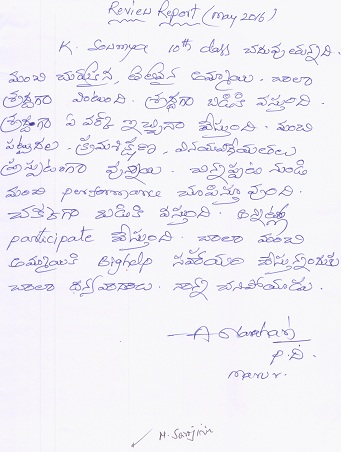 Review Report (May 2016)
K. Soumya 10th class చదువుతున్నది.
మంచి చురుకైన, తెలివైన అమ్మాయి. చాలా
శ్రద్ధగా వింటుంది. శ్రద్ధగా బడికి వస్తుంది.
శ్రద్ధగా ఏ వర్క్ ఇచ్చినా చేస్తుంది. మంచి
పట్టుదల, క్రమశిక్షణ, వినయవిధేయతలు
వున్నాయి. చిన్నప్పటి నుండి
మంచి performance చూపిస్తూ వుంది.
చక్కగా బడికి వస్తుంది. అన్నింట్లో
participate చేస్తుంది. చాలా మంచి
అమ్మాయికి Bighelp సహాయం చేస్తున్నందుకు
చాలా ధన్యవాదాలు. నాన్న చనిపోయాడు.
P.D.
N. Sarojini